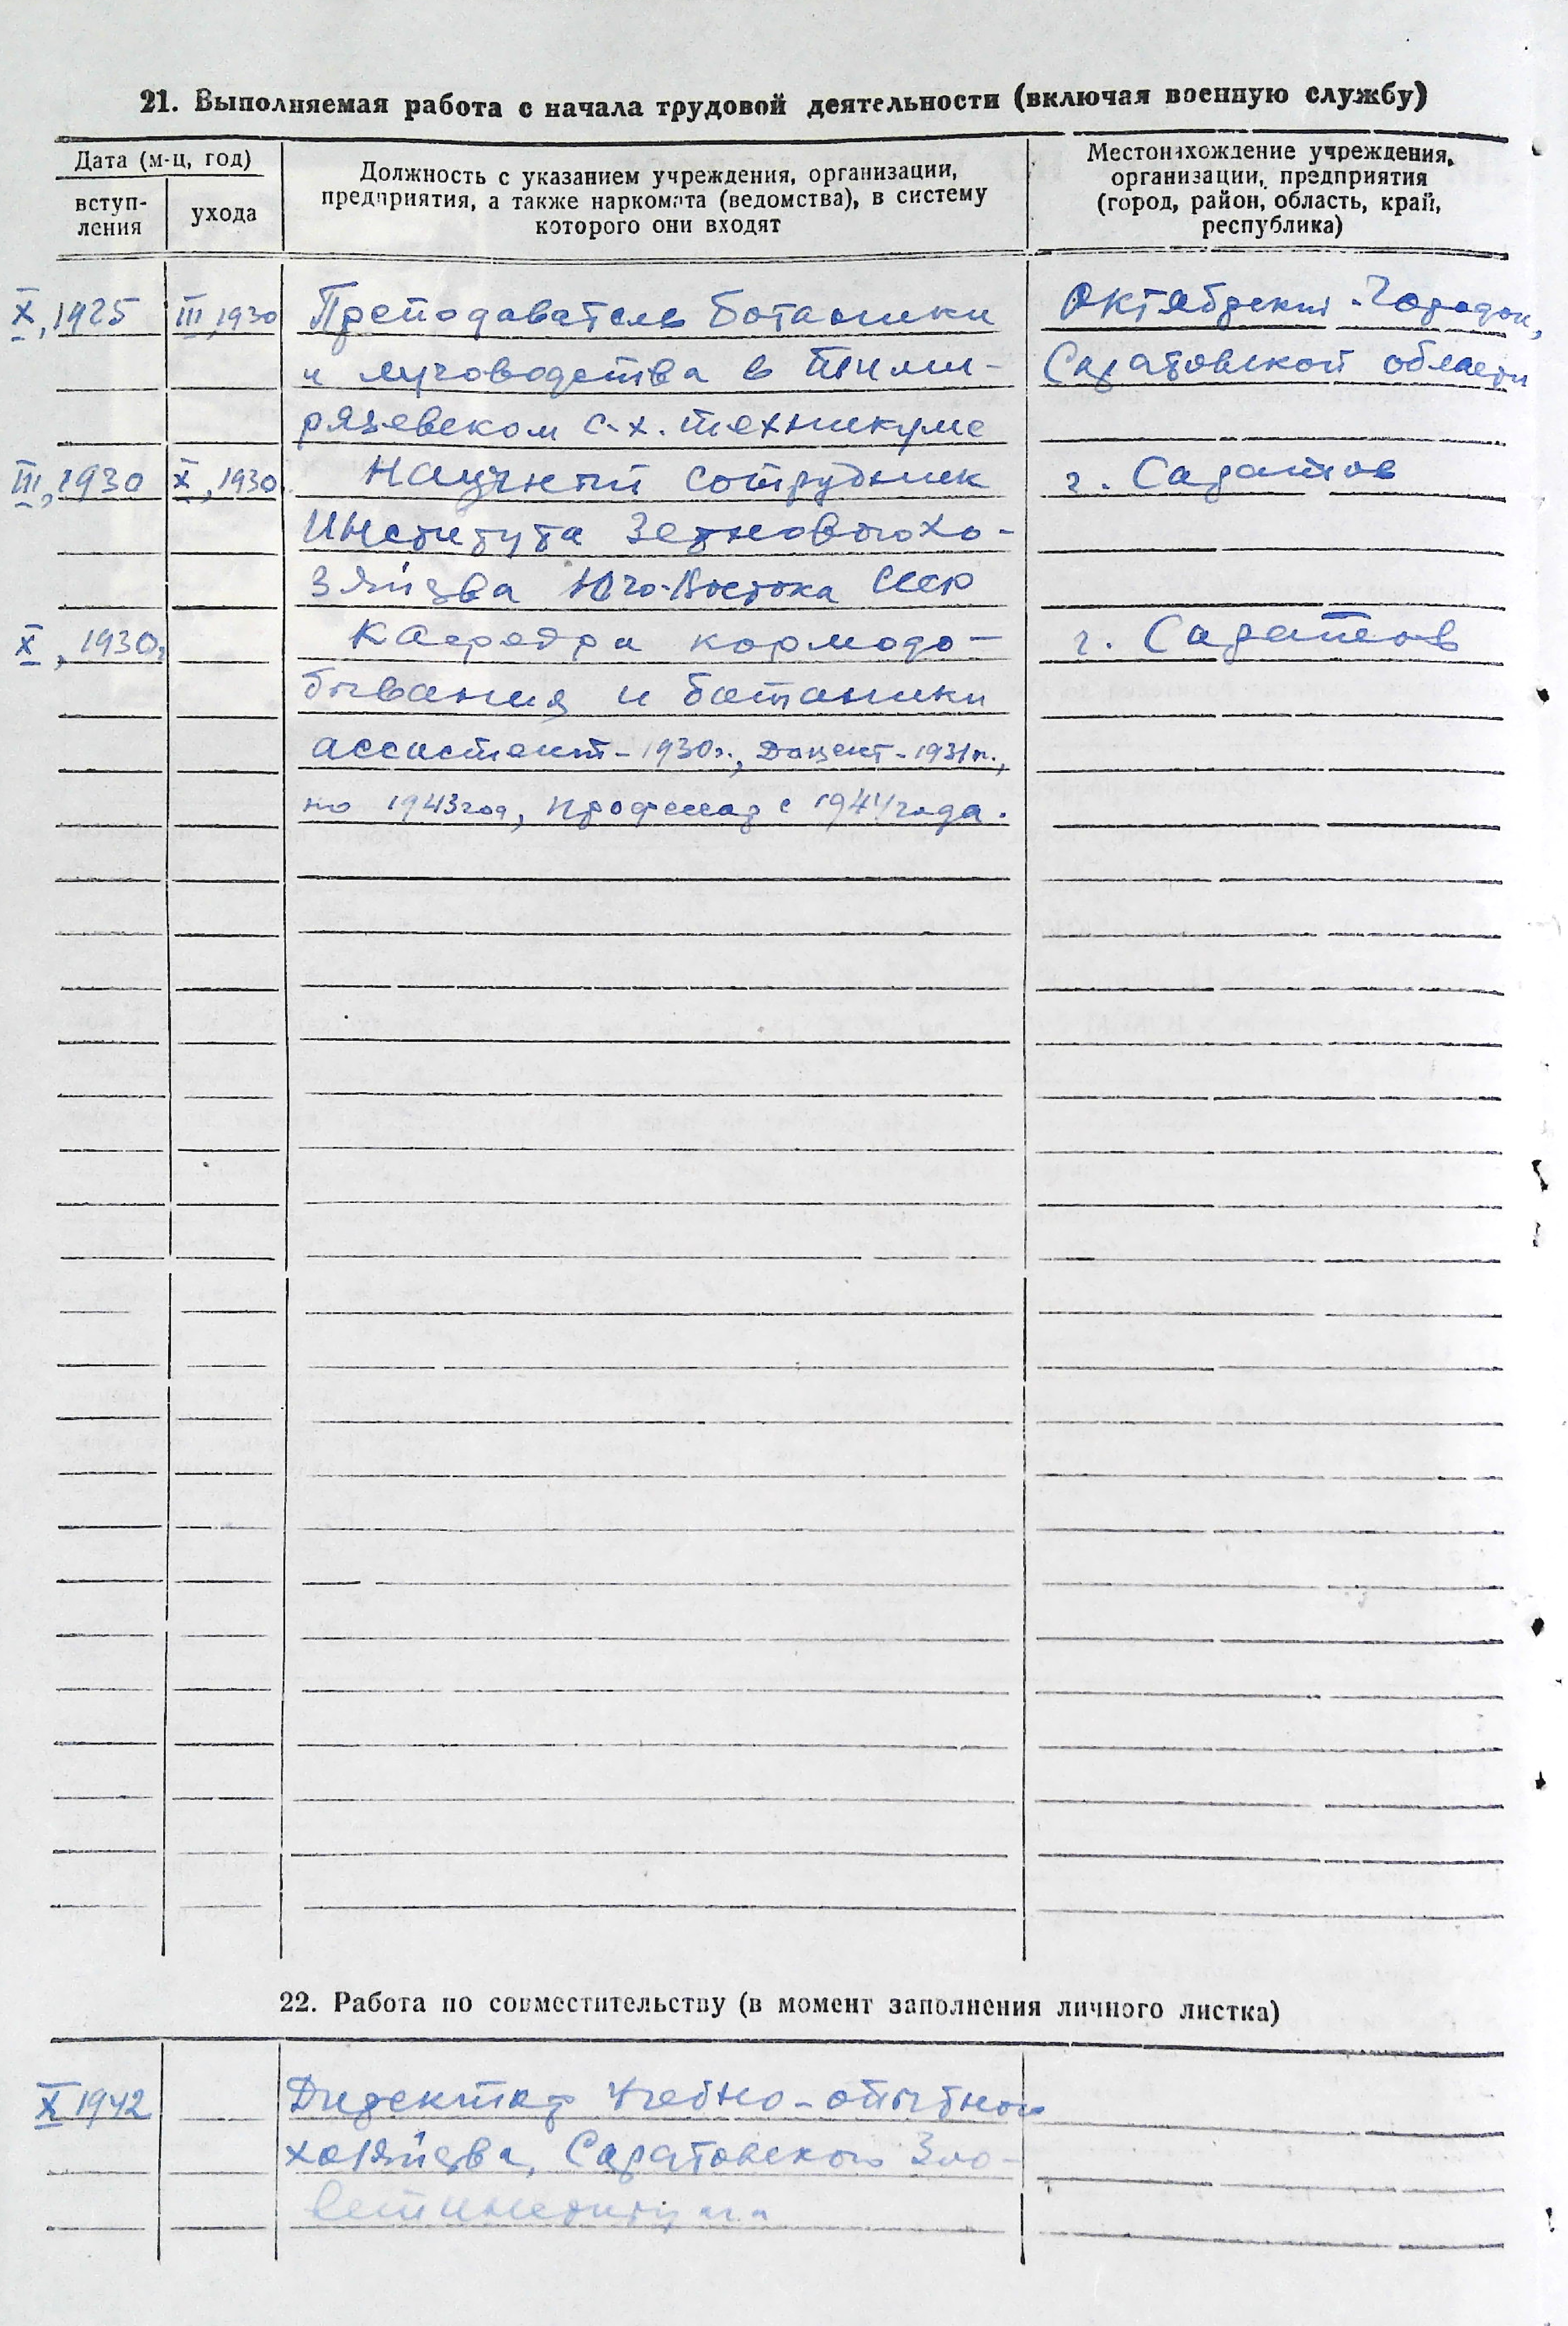 21. Выполняемая работа с начала трудовой деятельности (включая военную службу)
Дата (м-ц, год)
вступ-
ления
ухода
Должность с указанием учреждения, организации,
предприятия, а также наркомата (ведомства), в систему
которого они входят
Местонахождение учреждения,
организации, предприятия
(город, район, область, край,
республика)
X, 1925 III, 1930 Преподаватель ботаники Октябрьский Городок,
и луговодства в Тими- Саратовской области
рязевском с.х. техникуме
III, 1930 X, 1930 Научный сотрудник г. Саратов
Института Зернового хо-
зяйства Юго-Востока СССР
X, 1930г. Кафедра кормодо- г. Саратов
бывания и ботаники
ассистент - 1930г., доцент - 1931г.,
по 1943 год, профессор с 1944 года.
22. Работа по совместительству (в момент заполнения личного листка)
X 1942 Директор Учебно-опытного
хозяйства, Саратовского Зоо-
ветинститута